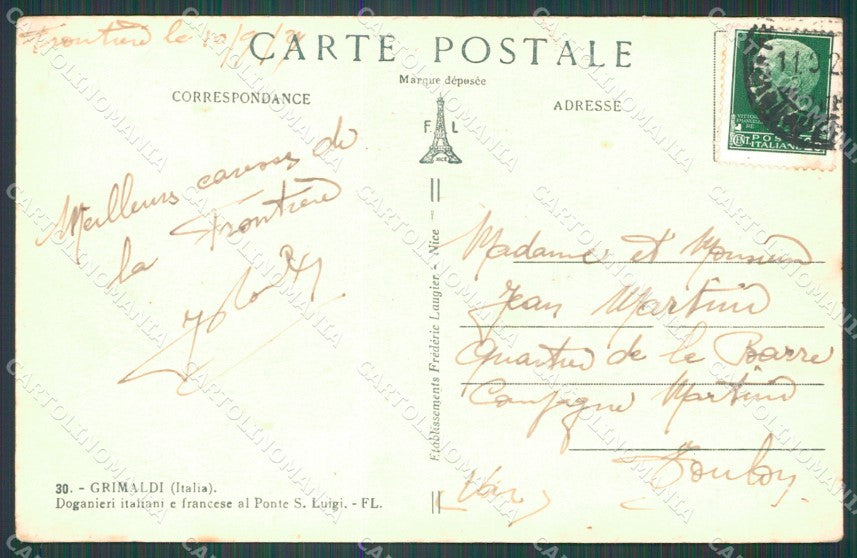 Frontière le
CARTE POSTALE
Marque déposée
CORRESPONDANCE
ADRESSE
F L
NICE
POSTE
ITALIANE
CENT
Meilleurs de
la Frontière
Madame et Monsieur
Jean Martini
Quartier de la Barre
Campagne Martini
Toulon
(Var)
Etablissements Frédéric Laugier - Nice
30. - GRIMALDI (Italia).
Doganieri italiani e francese al Ponte S. Luigi. - FL.
CARTOLINOMANIA